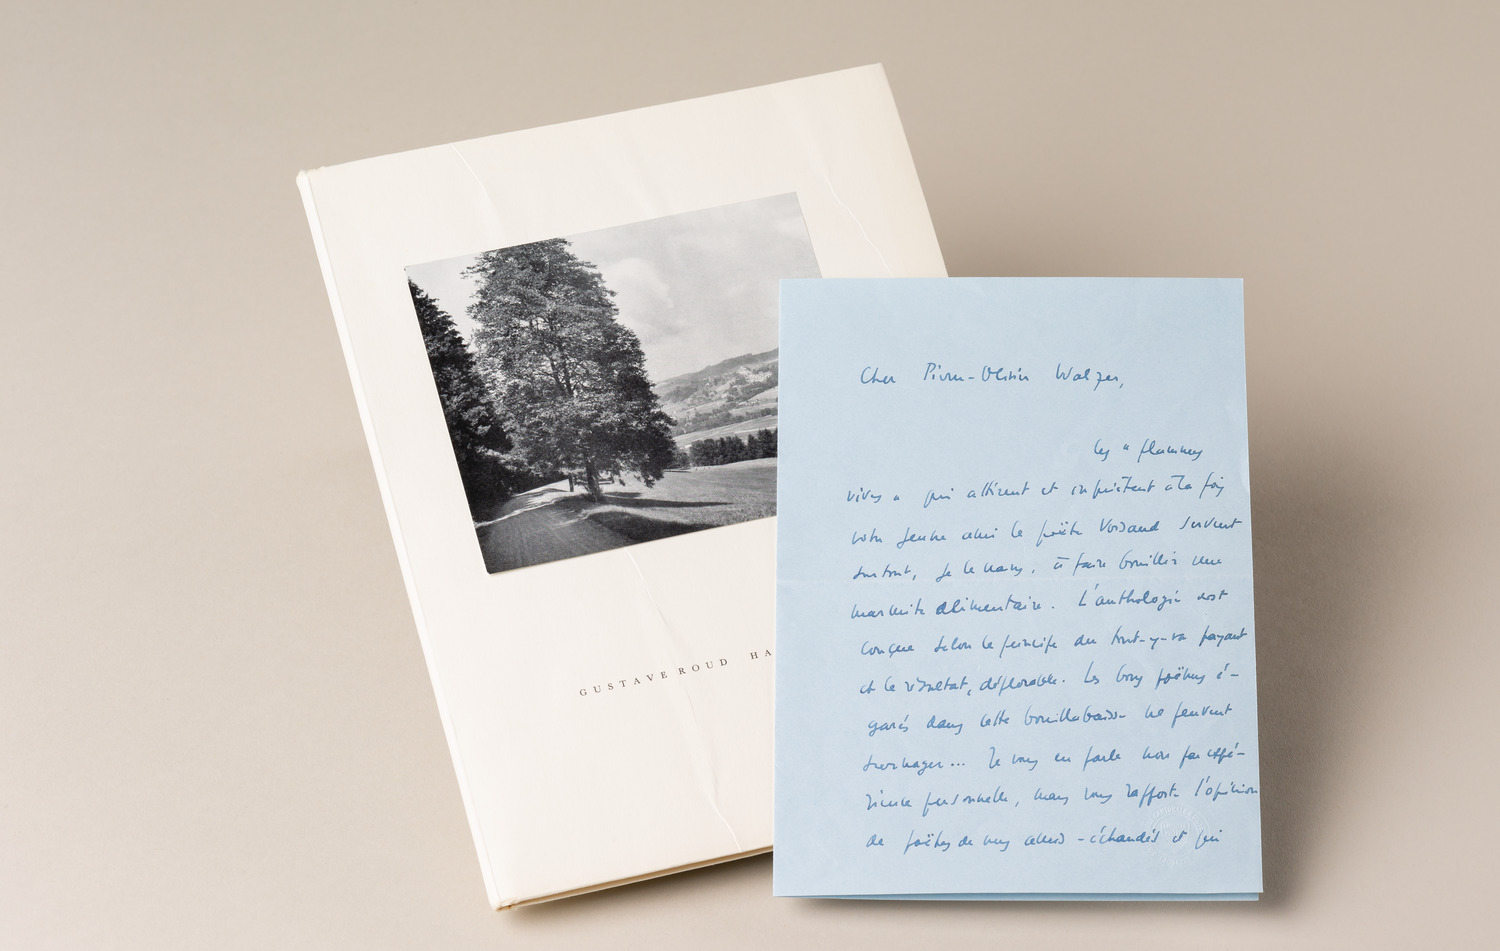 GUSTAVE ROUD HA
Cher Pierre-Olivier Walzer,
les « flammes
vives » qui attirent et inquiètent à la fois
votre jeune ami le poète Voisard servent
surtout, je le crains, à faire bouillir une
marmite alimentaire. L'anthologie est
conçue selon le principe du tout-y-va payant
et le résultat, déplorable. Les bons poètes é-
garés dans cette bouillabaisse ne peuvent
surnager... Je vous en parle non par expé-
rience personnelle, mais vous rapporte l'opinion
de poètes de mes amis - échaudés et qui